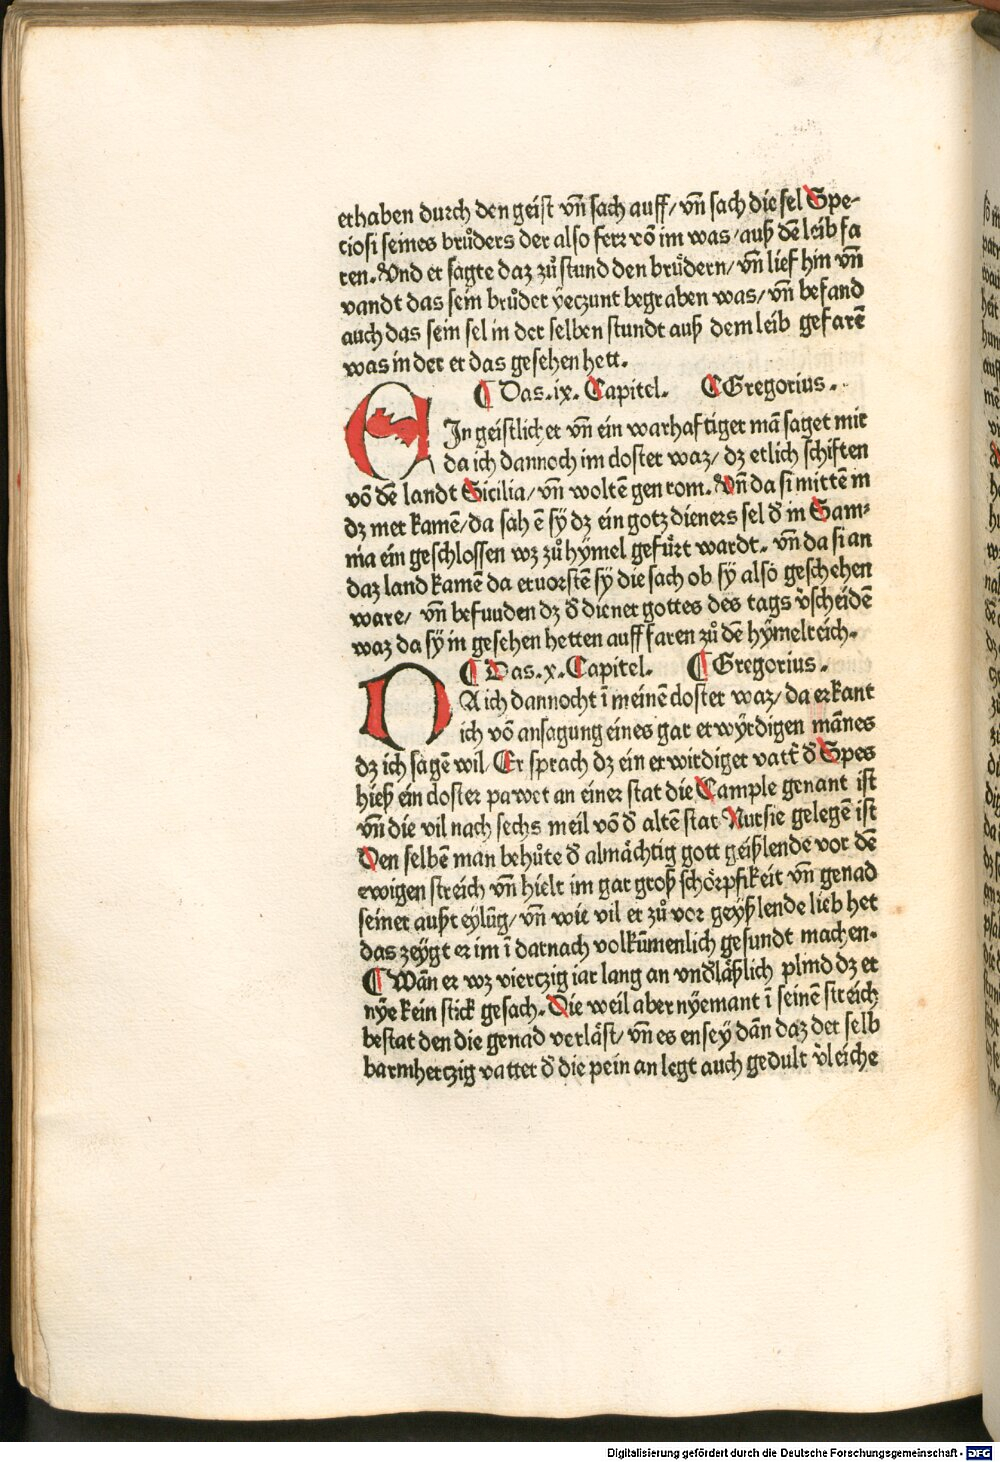 erhaben durch den geist vn̄ sach auff/ vn̄ sach die sel Spe-
ciosi seines brůders der also ferr vō im was/ auß dē leib fa
ren. Vnd er sagte daz zů stund den brůdern/ vn̄ lief hin vn̄
vandt das sein brůder ÿeczunt begraben was/ vn̄ befand
auch das sein sel in der selben stundt auß dem leib gefarē
was in der er das gesehen hett.
¶ Das .ix. Capitel. ¶ Gregorius.
EIn geistlicher vn̄ ein warhaftiger mā saget mir
da ich dannoch im closter waz/ dz etlich schiften
vō dē landt Sicilia/ vn̄ woltē gen rom. Vn̄ da si mittē in
dz mer kamē/ da sah ē sÿ dz ein gotz dieners sel d̄ in Sam-
nia ein geschlossen wz zů hÿmel gefůrt wardt. vn̄ da si an
daz land kamē da eruorstē sÿ die sach ob sÿ also geschehen
ware/ vn̄ befuuden dz d̄ diener gottes des tags v̉scheidē
waz da sÿ in gesehen hetten auff faren zů dē hÿmelreich.
¶ Das .x. Capitel. ¶ Gregorius.
DA ich dannocht ī meinē closter waz/ da erkant
ich vō ansagung eines gar erwÿrdigen mānes
dz ich sagē wil/ Er sprach dz ein erwirdiger vatt̉ d̄ Spes
hieß ein closter pawet an einer stat die Cample genant ist
vn̄ die vil nach sechs meil vō d̄ altē stat Nursie gelegē ist
Den selbē man behůte d̄ almåchtig gott geißlende vor dē
ewigen streich vn̄ hielt im gar groß schörpfikeit vn̄ genad
seiner außteylūg/ vn̄ wie vil er zů vor geyßlende lieb het
das zeÿgt er im ī darnach volkūmenlich gesundt machen.
¶ Wān er wz vierczig iar lang an vnd̄läßlich plind dz er
nÿe kein stick gesach. Die weil aber nÿemant ī seinē streich
bestat den die genad verläst/ vn̄ es ensey dān daz der selb
barmherczig vatter d̄ die pein an legt auch gedult v̉leiche
Digitalisierung gefördert durch die Deutsche Forschungsgemeinschaft - DFG